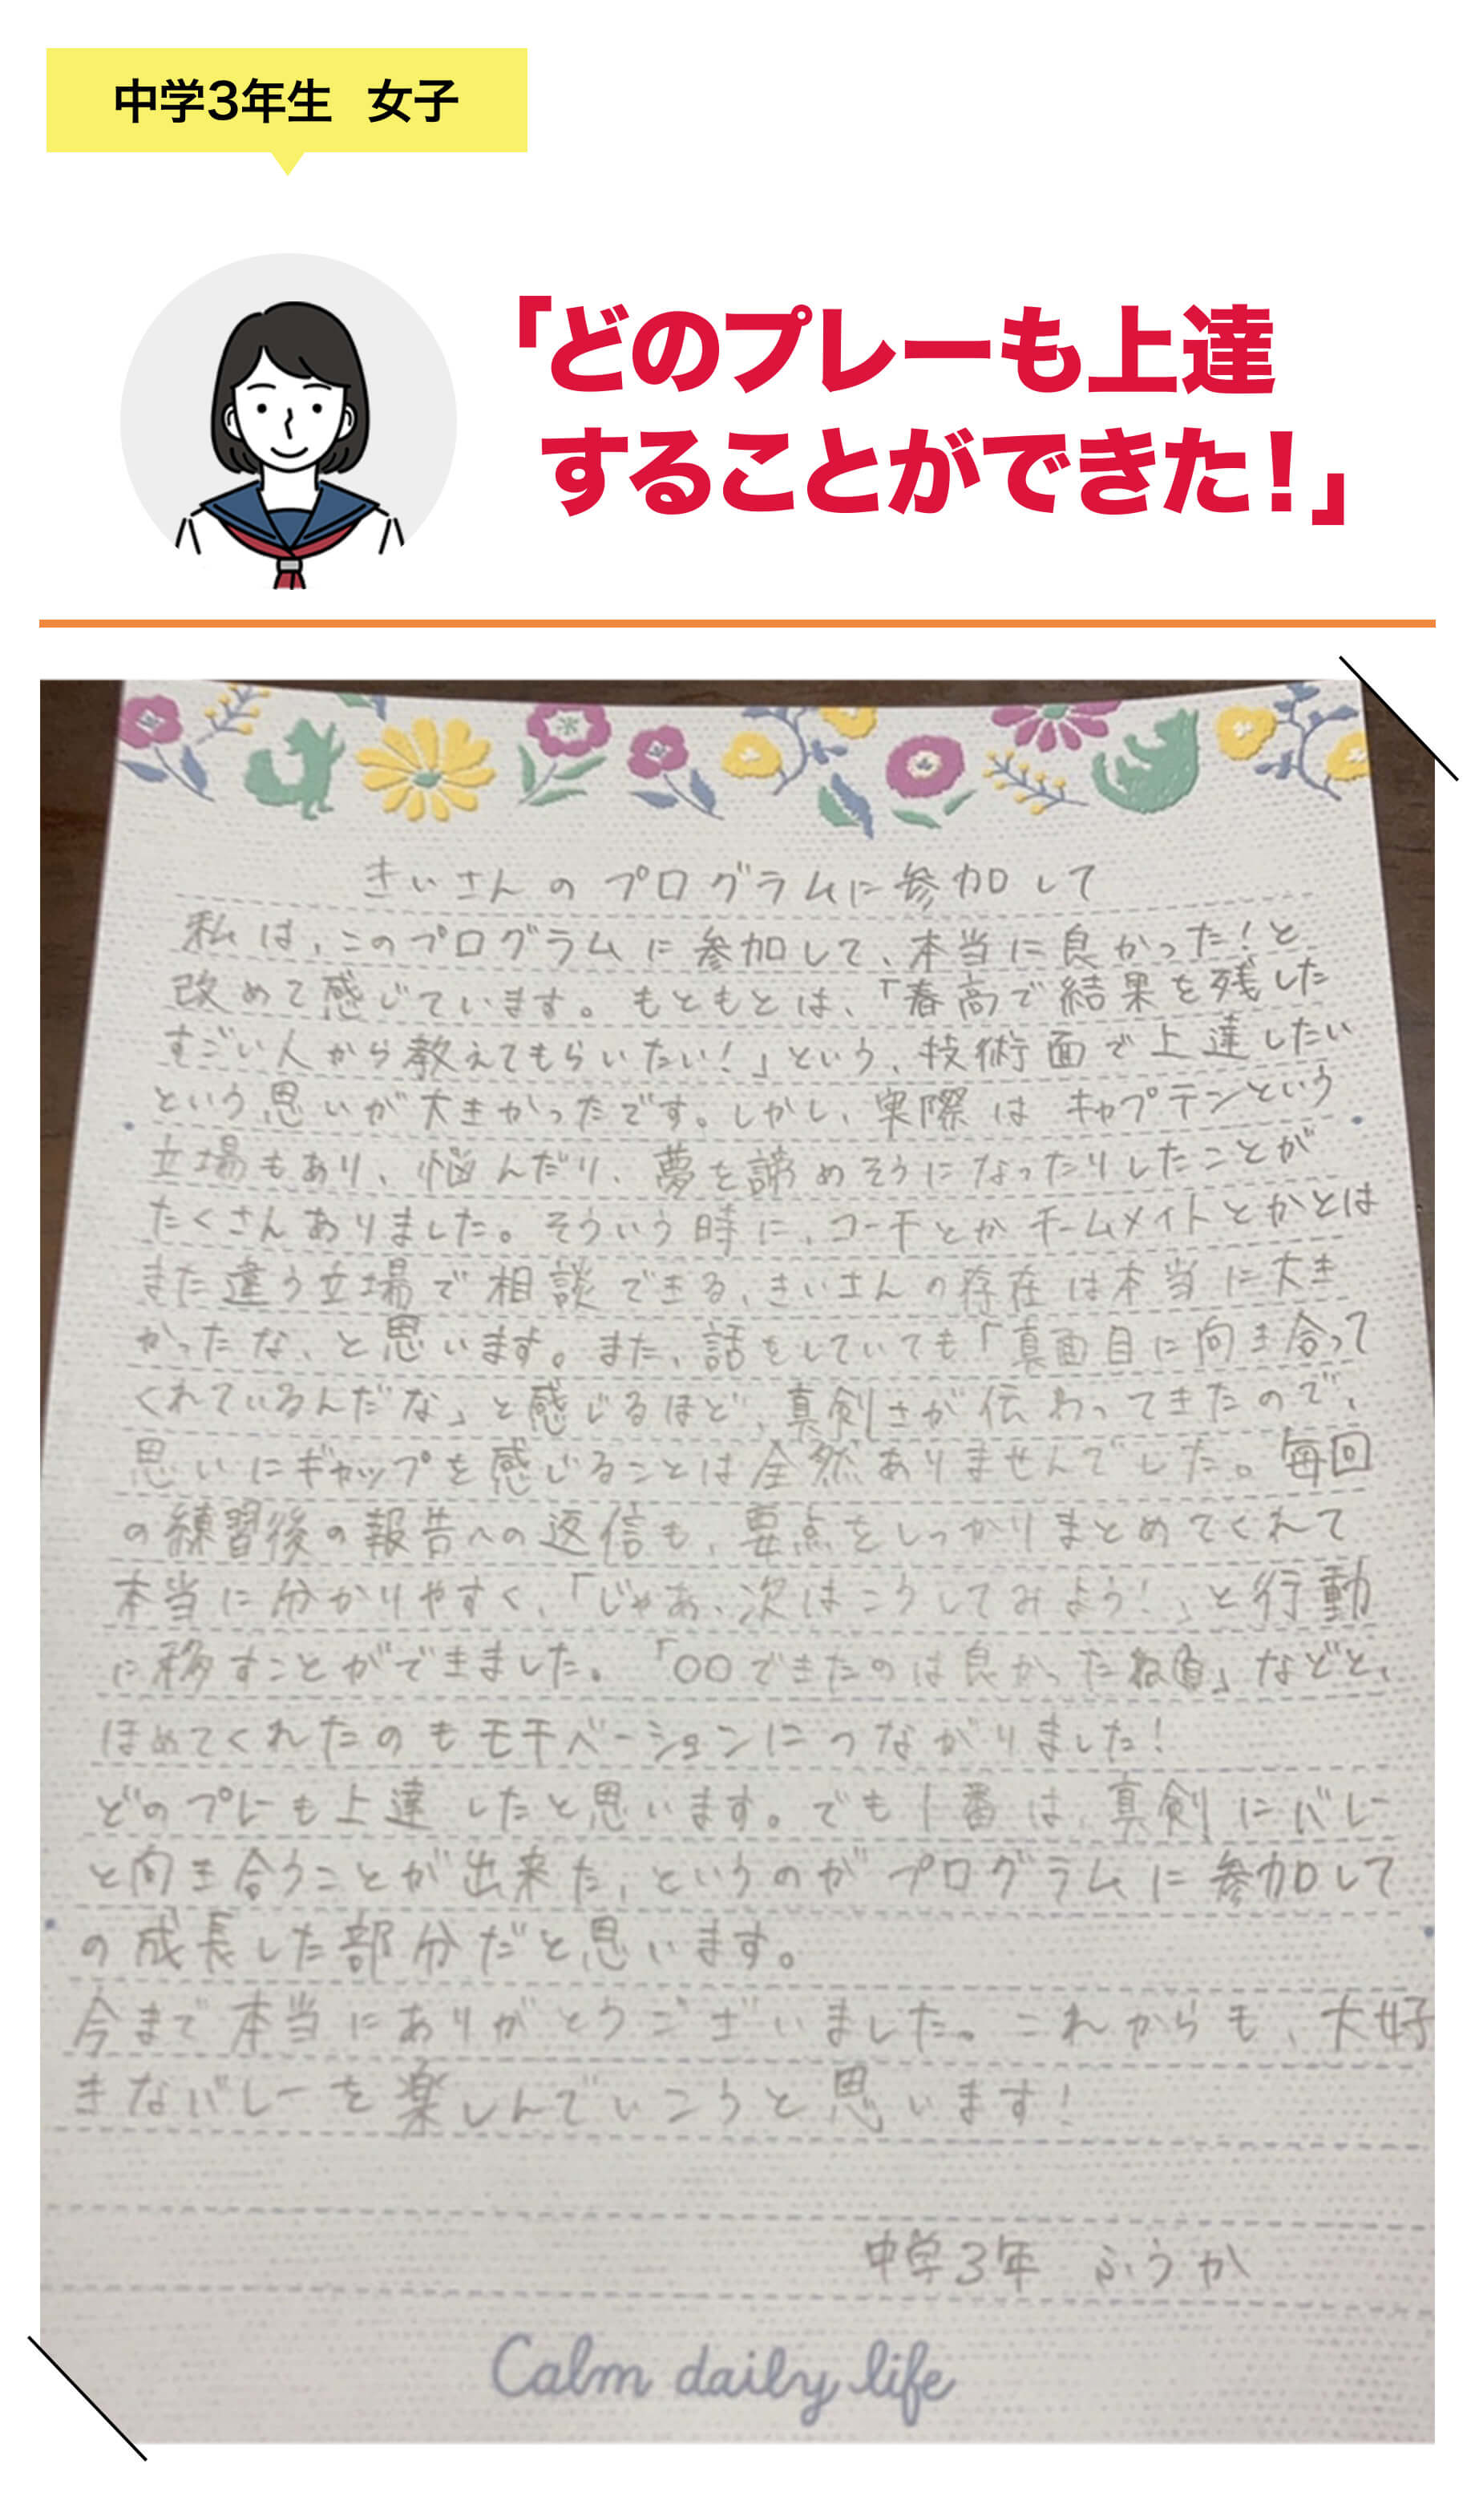 中学3年生 女子
「どのプレーも上達
することができた!」
きいさんのプログラムに参加して
私は、このプログラムに参加して、本当に良かった!と
改めて感じています。もともとは、「春高で結果を残した
すごい人から教えてもらいたい!」という、技術面で上達したい
という思いが大きかったです。しかし、実際はキャプテンという
立場もあり、悩んだり、夢を諦めそうになったりしたことが
たくさんありました。そういう時に、コーチとかチームメイトとかとは
また違う立場で相談できる、きいさんの存在は本当に大き
かったな、と思います。また、話をしていても「真面目に向き合って
くれているんだな」と感じるほど、真剣さが伝わってきたので、
思いにギャップを感じることは全然ありませんでした。毎回
の練習後の報告への返信も、要点をしっかりまとめてくれて
本当に分かりやすく、「じゃあ、次はこうしてみよう!」と行動
に移すことができました。「〇〇できたのは良かったね」などと、
ほめてくれたのもモチベーションにつながりました!
どのプレーも上達したと思います。でも1番は、真剣にバレー
と向き合うことが出来た、というのがプログラムに参加して
の成長した部分だと思います。
今まで本当にありがとうございました。これからも、大好
きなバレーを楽しんでいこうと思います!
中学3年 ふうか
Calm daily life